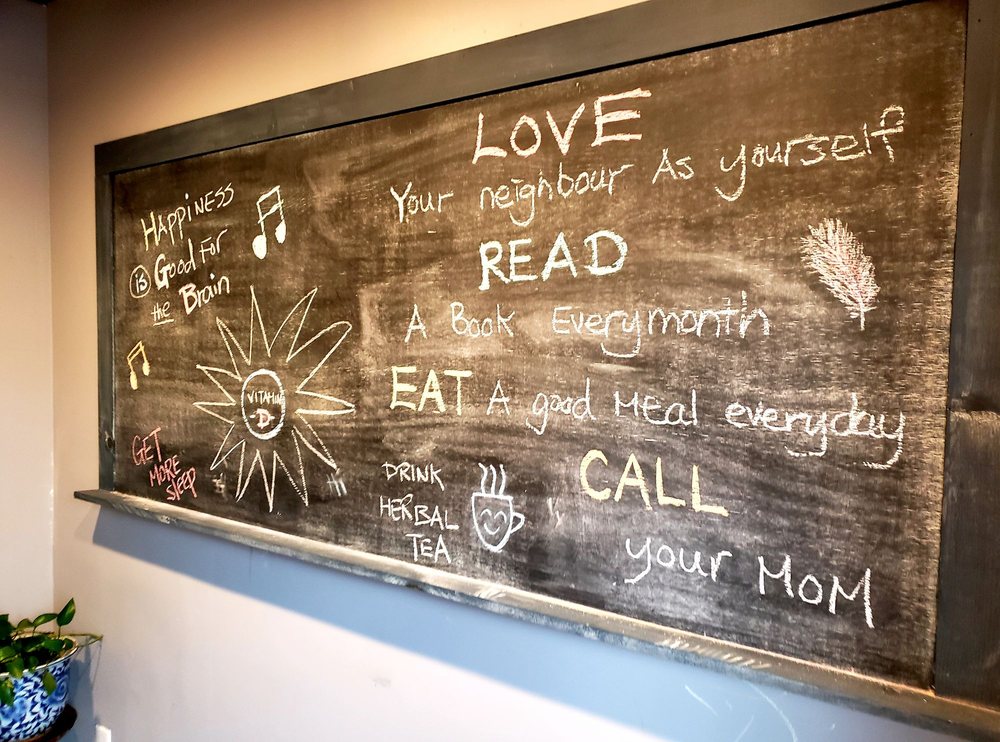 HAPPiNESS
is Good For
the Brain
VITAMIN
-D-
GET
MORE
SLEEP
LOVE
Your neighbour As yourself
READ
A Book Everymonth
EAT A good Meal everyday
DRINK
HERBAL
TEA
CALL
your MoM
Hi